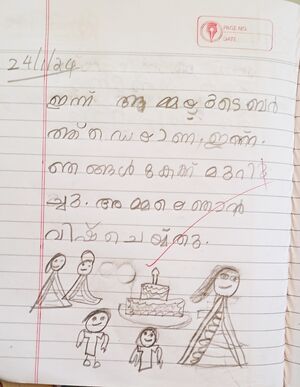 PAGE NO.
DATE:
24/1/24
ഇന്ന് അമ്മയുടെ ബർ
ത്ത് ഡെ ആണ്. ഇന്ന്.
ഞങ്ങൾ കേക്ക് മുറി
ച്ചു. അമ്മയെ ഞാൻ
വിഷ് ചെയ്തു.